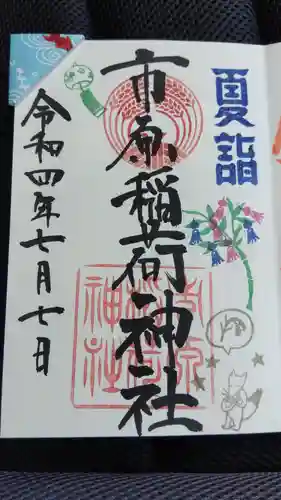 夏詣
市原稲荷神社
令和四年七月七日
市原
稲荷
神社